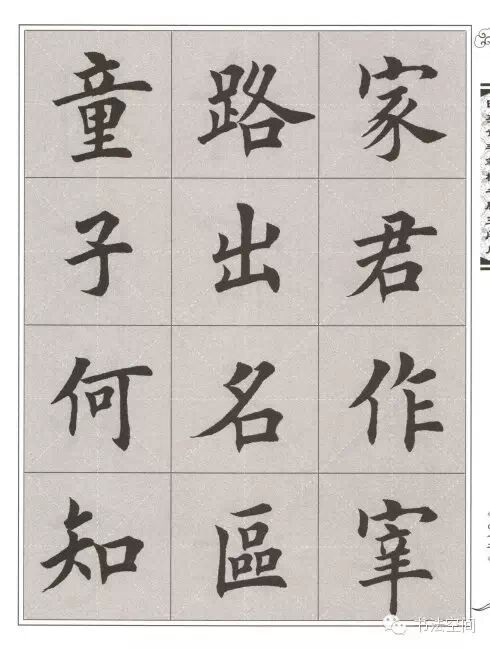 家君作宰
路出名區
童子何知
书法空间